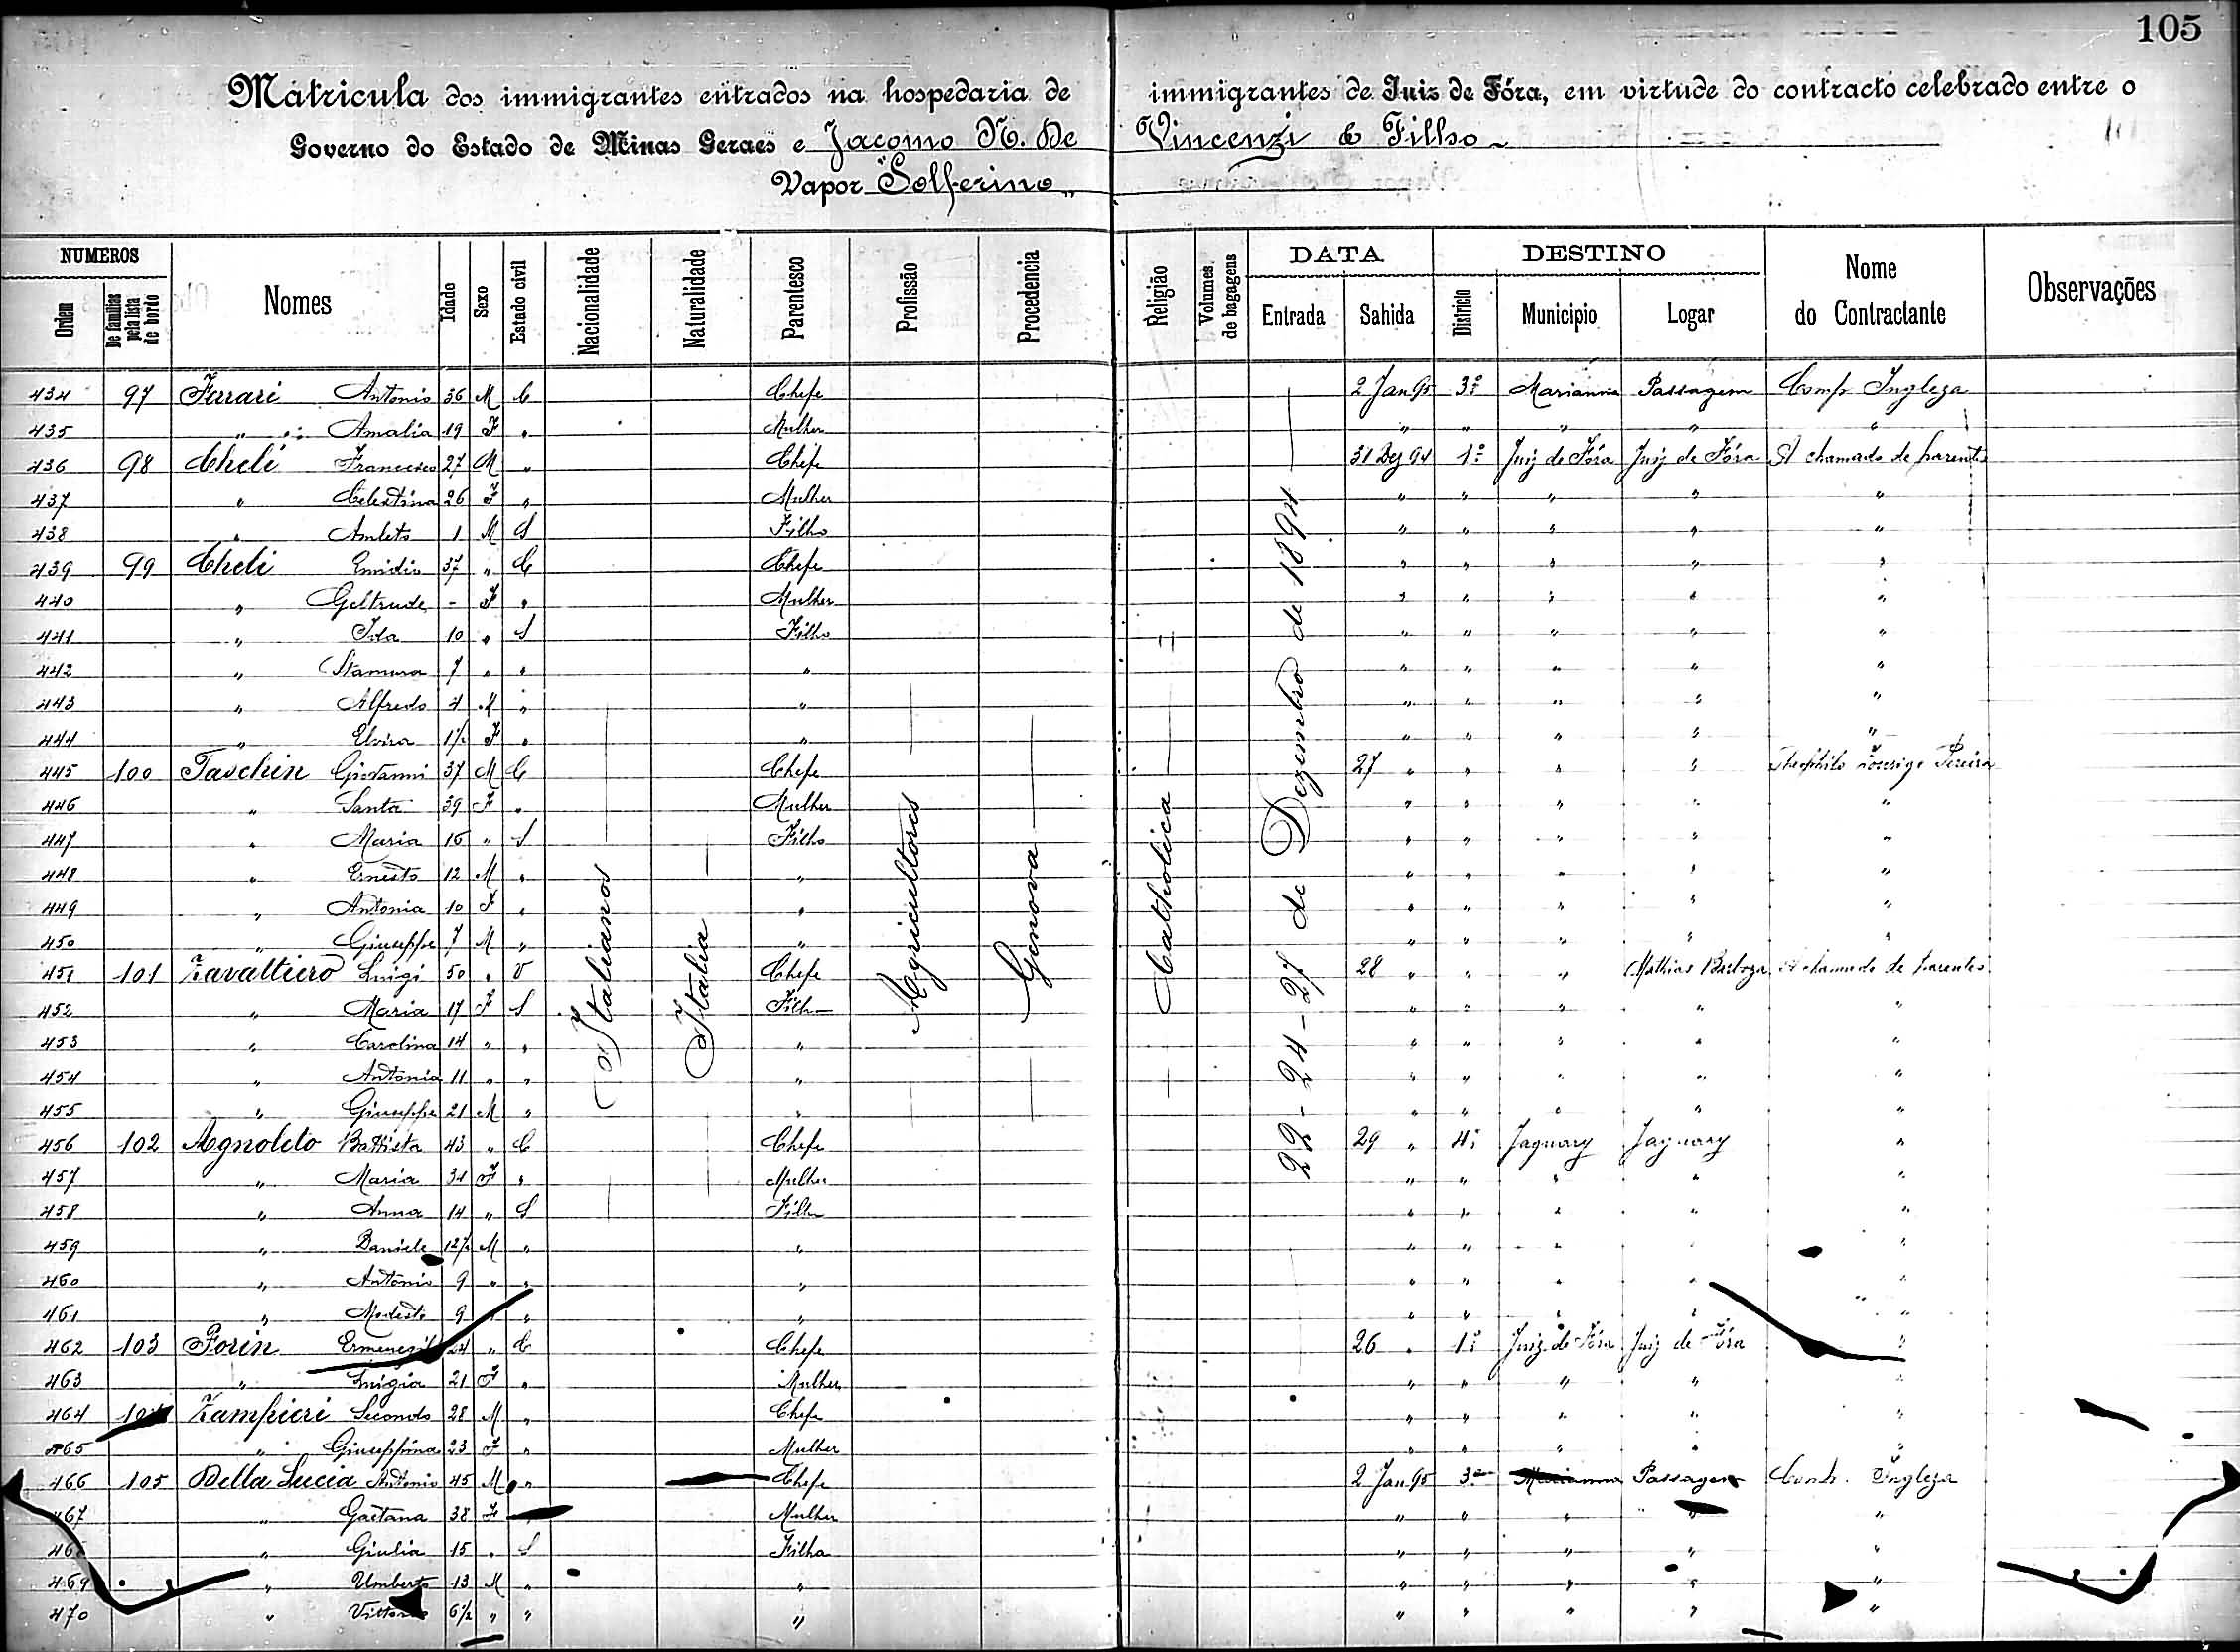 105
Matricula dos immigrantes entrados na hospedaria de immigrantes de Juiz de Fóra, em virtude do contracto celebrado entre o
Governo do Estado de Minas Geraes e Jacomo N. De Vincenzi & Filho
Vapor "Solferino"
NUMEROS DATA DESTINO
Ordem De familias pela lista de bordo Nomes Idade Sexo Estado civil Nacionalidade Naturalidade Parentesco Profissão Procedencia Religião Volumes de bagagens Entrada Sahida Districto Municipio Logar Nome do Contractante Observações
Italianos
Italia
Agricultores
Genova
Catholica
22 - 24 - 27 de Dezembro de 1894
434 97 Ferrari Antonio 36 M C Chefe 2 Jan 95 3º Marianna Passagem Comp Ingleza
435 " Amalia 19 F " Mulher " " " " "
436 98 Cheli Francesco 27 M " Chefe 31 Dez 94 1º Juiz de Fóra Juiz de Fóra A chamado de parentes
437 " Celestina 26 F " Mulher " " " " "
438 " Amleto 1 M S Filho " " " " "
439 99 Cheli Emidio 37 " C Chefe " " " " "
440 " Geltrude - F " Mulher " " " " "
441 " Ida 10 " S Filho " " " " "
442 " Stamura 7 " " " " " " " "
443 " Alfredo 4 M " " " " " " "
444 " Elvira 1½ F " " " " " " "
445 100 Taschin Giovanni 37 M C Chefe 27 " " " " Theophilo Pereira
446 " Santa 39 F " Mulher " " " " "
447 " Maria 16 " S Filho " " " " "
448 " Ernesto 12 M " " " " " " "
449 " Antonia 10 F " " " " " " "
450 " Giuseppe 7 M " " " " " " "
451 101 Zavattiero Luigi 50 " V Chefe 28 " " " Mathias Barboza A chamado de parentes
452 " Maria 17 F S Filh " " " " "
453 " Carolina 14 " " " " " " " "
454 " Antonia 11 " " " " " " " "
455 " Giuseppe 21 M " " " " " " "
456 102 Agnoleto Battista 43 " C Chefe 29 " 4º Jaguary Jaguary "
457 " Maria 34 F " Mulher " " " " "
458 " Anna 14 " S Filh " " " " "
459 " Daniele 12½ M " " " " " " "
460 " Antonio 9 " " " " " " " "
461 " Modesto 9 " " " " " " " "
462 103 Forin 24 " C Chefe 26 " 1º Juiz de Fóra Juiz de Fóra "
463 " Luigia 21 F " Mulher " " " " "
464 104 Zampieri Secondo 28 M " Chefe " " " " "
465 " Giuseppina 23 F " Mulher " " " " "
466 105 Della Lucia Antonio 45 M " Chefe 2 Jan 95 3º Marianna Passagem Comp. Ingleza
467 " Gaetana 38 F " Mulher " " " " "
468 " Giulia 15 " S Filha " " " " "
469 " Umberto 13 M " " " " " " "
470 " 6½ " " " " " " " "